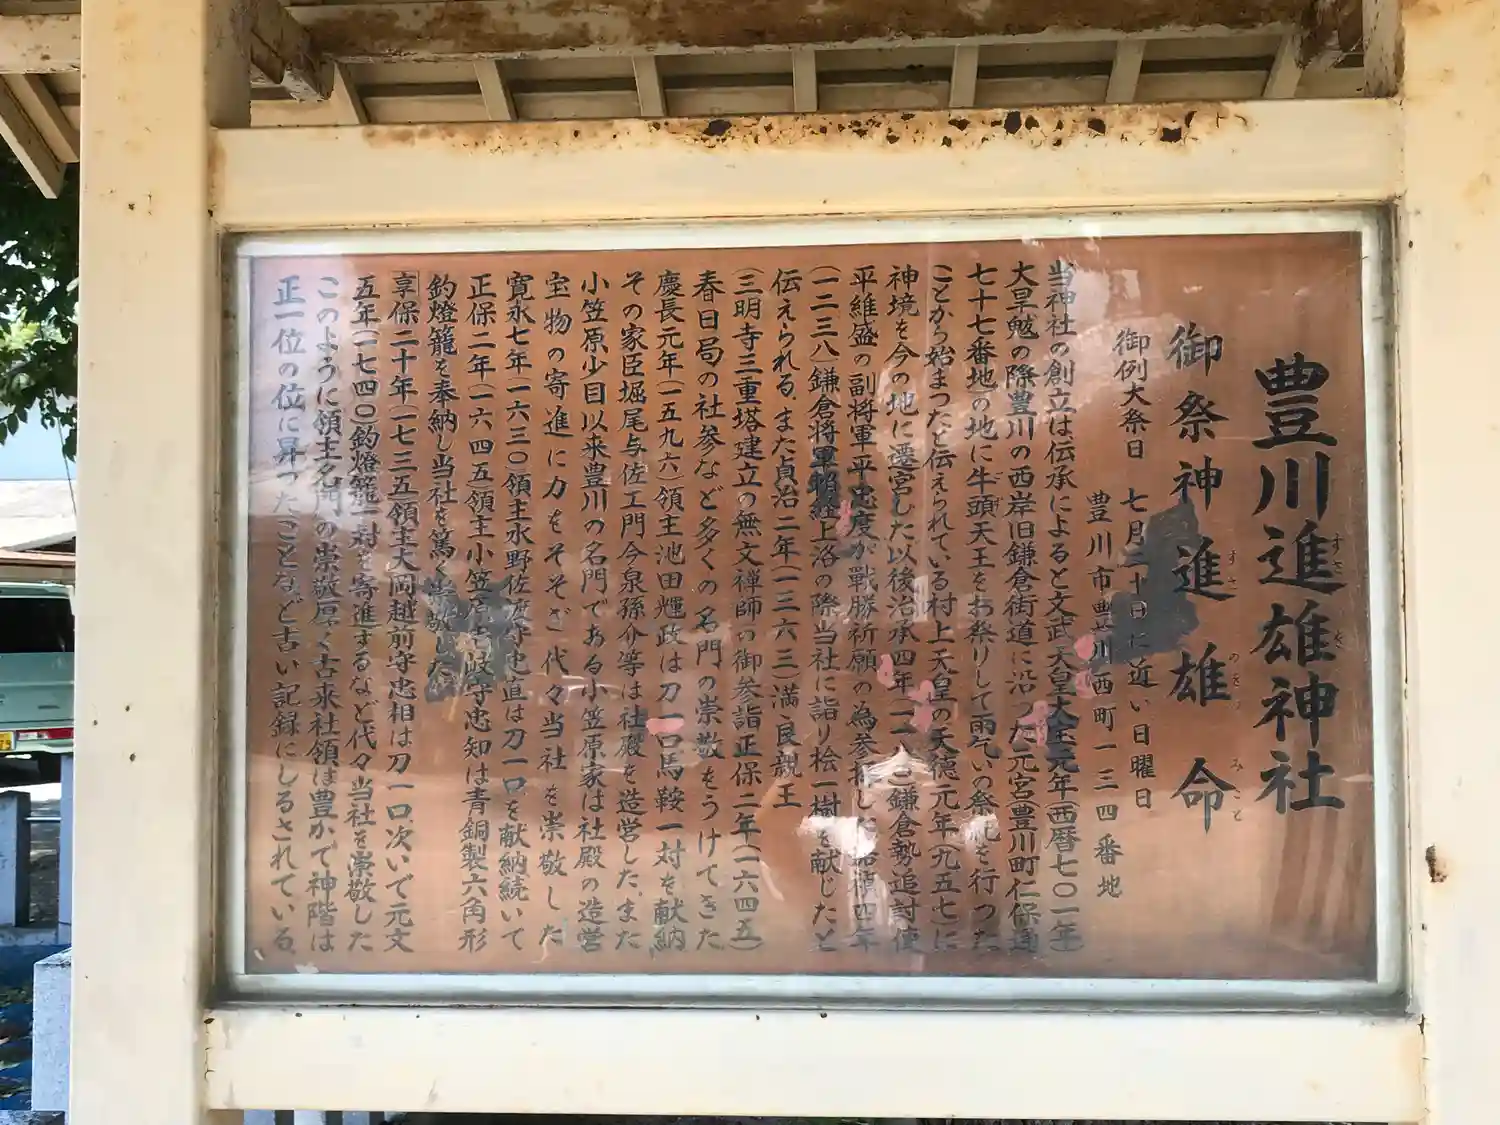 豊川進雄神社
すさのを
御祭神 進雄命
すさ のをの みこと
御例大祭日 七月二十日に近い日曜日
豊川市豊川西町一三四番地
当神社の創立は伝承によると文武天皇大宝元年(西暦七〇一年)
大旱魃の際豊川の西岸旧鎌倉街道に沿った元宮(豊川町仁保通
七十七番地)の地に牛頭天王をお祭りして雨乞いの祭祀を行った
ことから始まったと伝えられている村上天皇の天徳元年(九五七)に
神境を今の地に遷宮した以後治承四年(一一 〇)鎌倉勢追討使
平維盛の副将軍平忠度が戦勝祈願の為参拝し 嘉禎四年
(一二三八)鎌倉将軍 経上洛の際当社に詣り桧一樹を献じたと
伝えられる、また貞治二年(一三六三)満良親王
(三明寺三重塔建立の無文禅師の御参詣正保二年(一六四五)
春日局の社参など多くの名門の崇敬をうけてきた
慶長元年(一五九六)領主池田輝政は刀一口馬鞍一対を献納
その家臣堀尾与佐エ門今泉孫介等は社殿を造営した、また
小笠原少目以来豊川の名門である小笠原家は社殿の造営
宝物の寄進に力をそそぎ代々当社を崇敬した
寛永七年(一六三〇)領主水野佐渡守忠直は刀一口を献納続いて
正保二年(一六四五領主小笠原壱岐守忠知は青銅製六角形
釣燈籠を奉納し当社を篤く崇敬した、
享保二十年(一七三五領主大岡越前守忠相は刀一口次いで元文
五年(一七四〇)釣燈籠一対を寄進するなど代々当社を崇敬した
このように領主名門の崇敬厚く古来社領は豊かで神階は
正一位の位に昇ったことなど古い記録にしるされている、